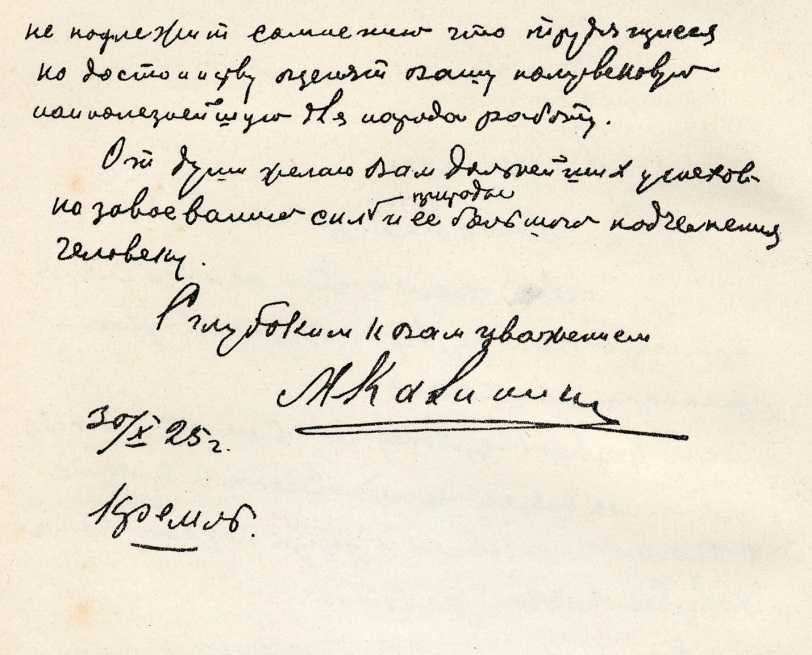 не подлежит сомнению что трудящиеся
по достоинству оценят вашу полувековую
наиполезнейшую для народа работу.
От души желаю вам дальнейших успехов
по завоеванию сил природы и ее большого подчинения
человеку.
С глубоким к вам уважением
М Калинин
30/X 25 г.
Кремль.